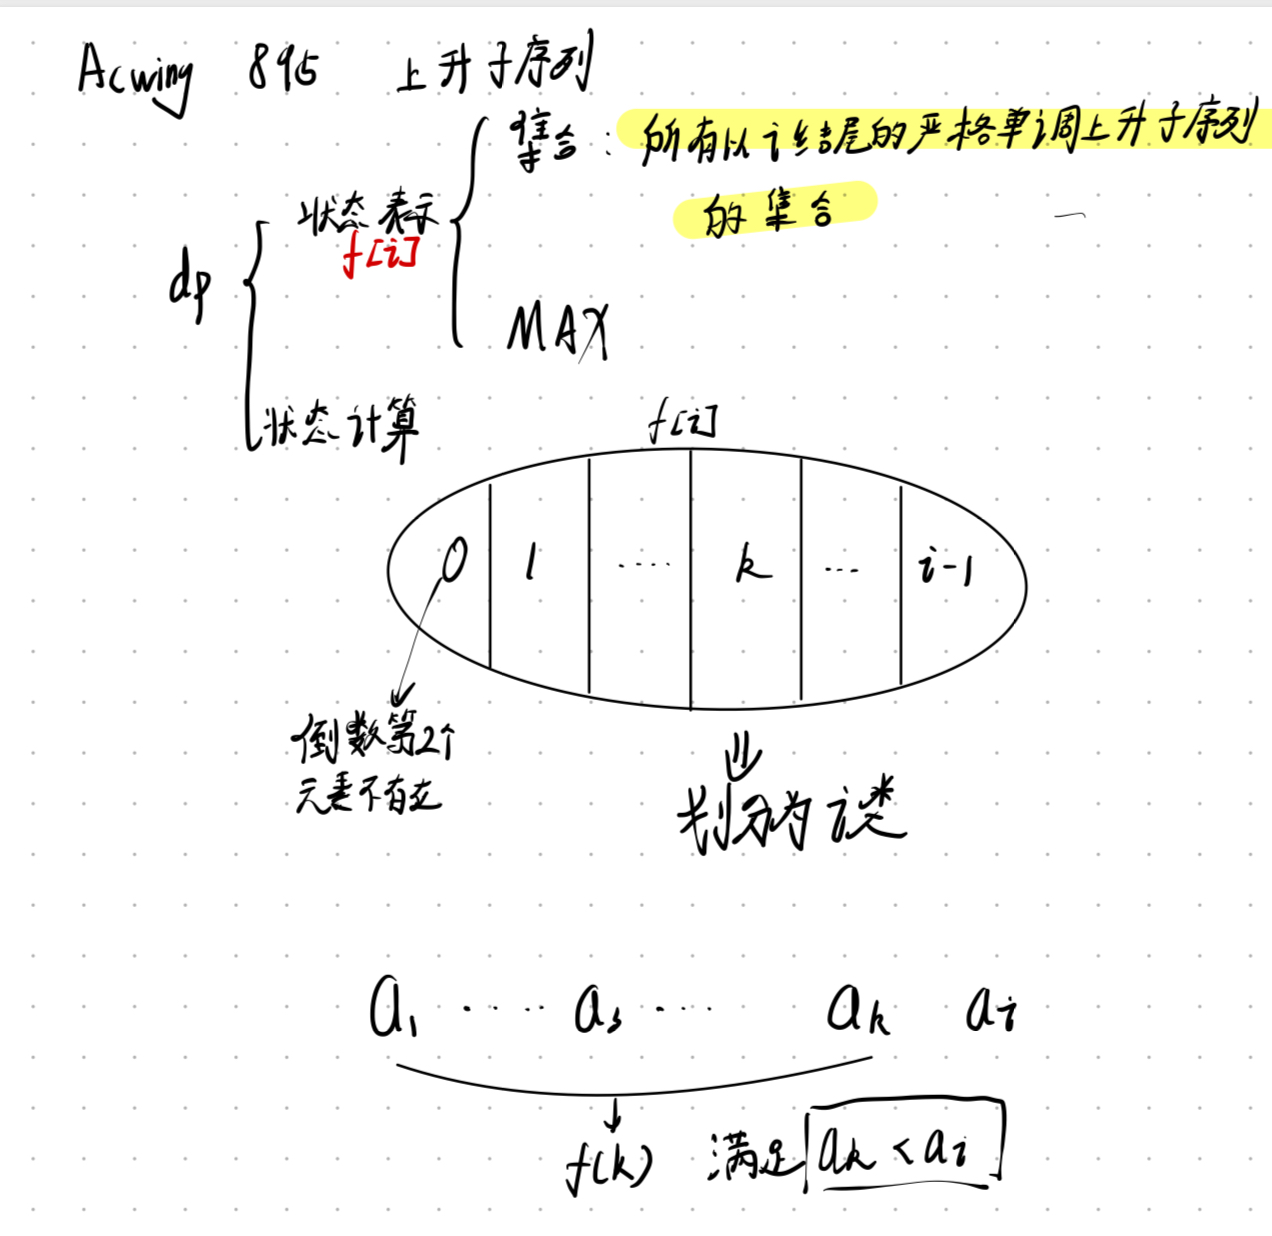 Acwing 895 上升子序列
集合：所有以i结尾的严格单调上升子序列
的集合
状态表示
f[i]
dp
MAX
状态计算
f[i]
0 1 ···· k ··· i-1
倒数第2个
元素不存在
划分为i类
a₁ ····· a₃ ···· aₖ aᵢ
f(k) 满足 aₖ < aᵢ